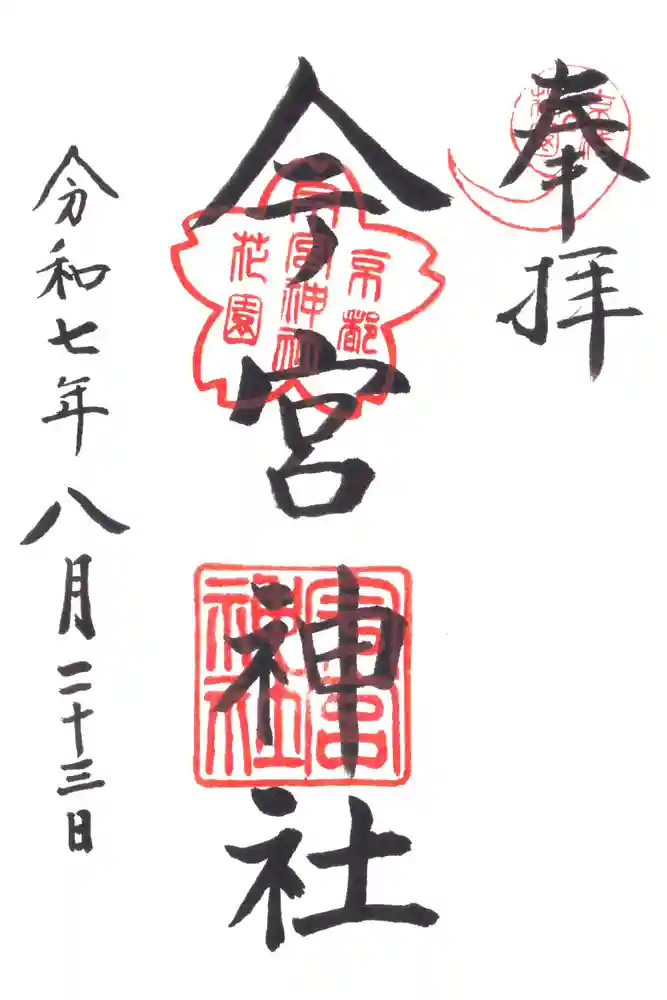 奉拝
今宮神社
京都
今宮神社
花園
令和七年八月二十三日